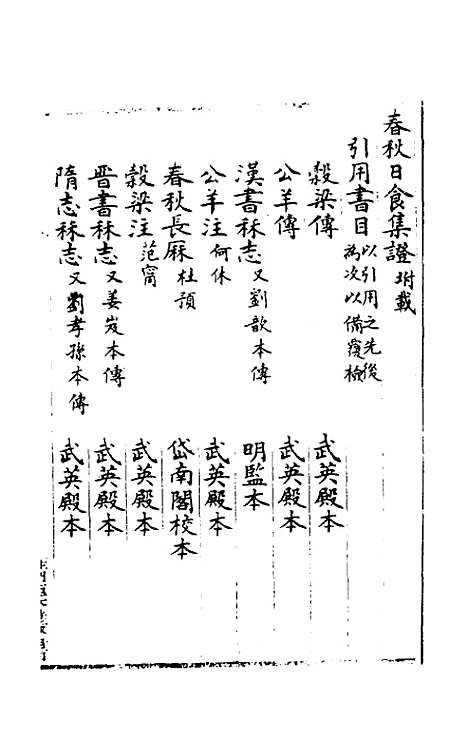 春秋日食集證坿載
引用書目以引用之先後為次以備覆檢
穀梁傳 武英殿本
公羊傳 武英殿本
漢書秝志又劉歆本傳 明監本
公羊注何休 武英殿本
春秋長厤杜預 岱南閣校本
穀梁注范甯 武英殿本
晉書秝志又姜岌本傳 武英殿本
隋志秝志又劉孝孫本傳 武英殿本